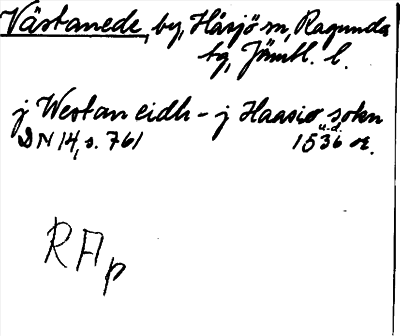 Västanede, by, Håsjö sn, Ragunda
tg, Jämtl. l.
j Westan eidh - j Haasiø sokn
DN 14, s. 761 u.d. 1536 or.
RAp